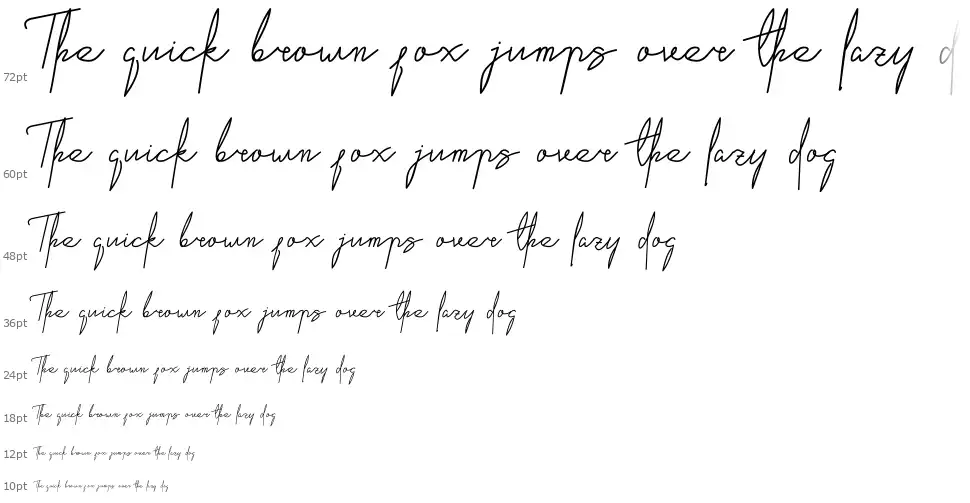 72pt The quick brown fox jumps over the lazy d
60pt The quick brown fox jumps over the lazy dog
48pt The quick brown fox jumps over the lazy dog
36pt The quick brown fox jumps over the lazy dog
24pt The quick brown fox jumps over the lazy dog
18pt The quick brown fox jumps over the lazy dog
12pt The quick brown fox jumps over the lazy dog
10pt The quick brown fox jumps over the lazy dog